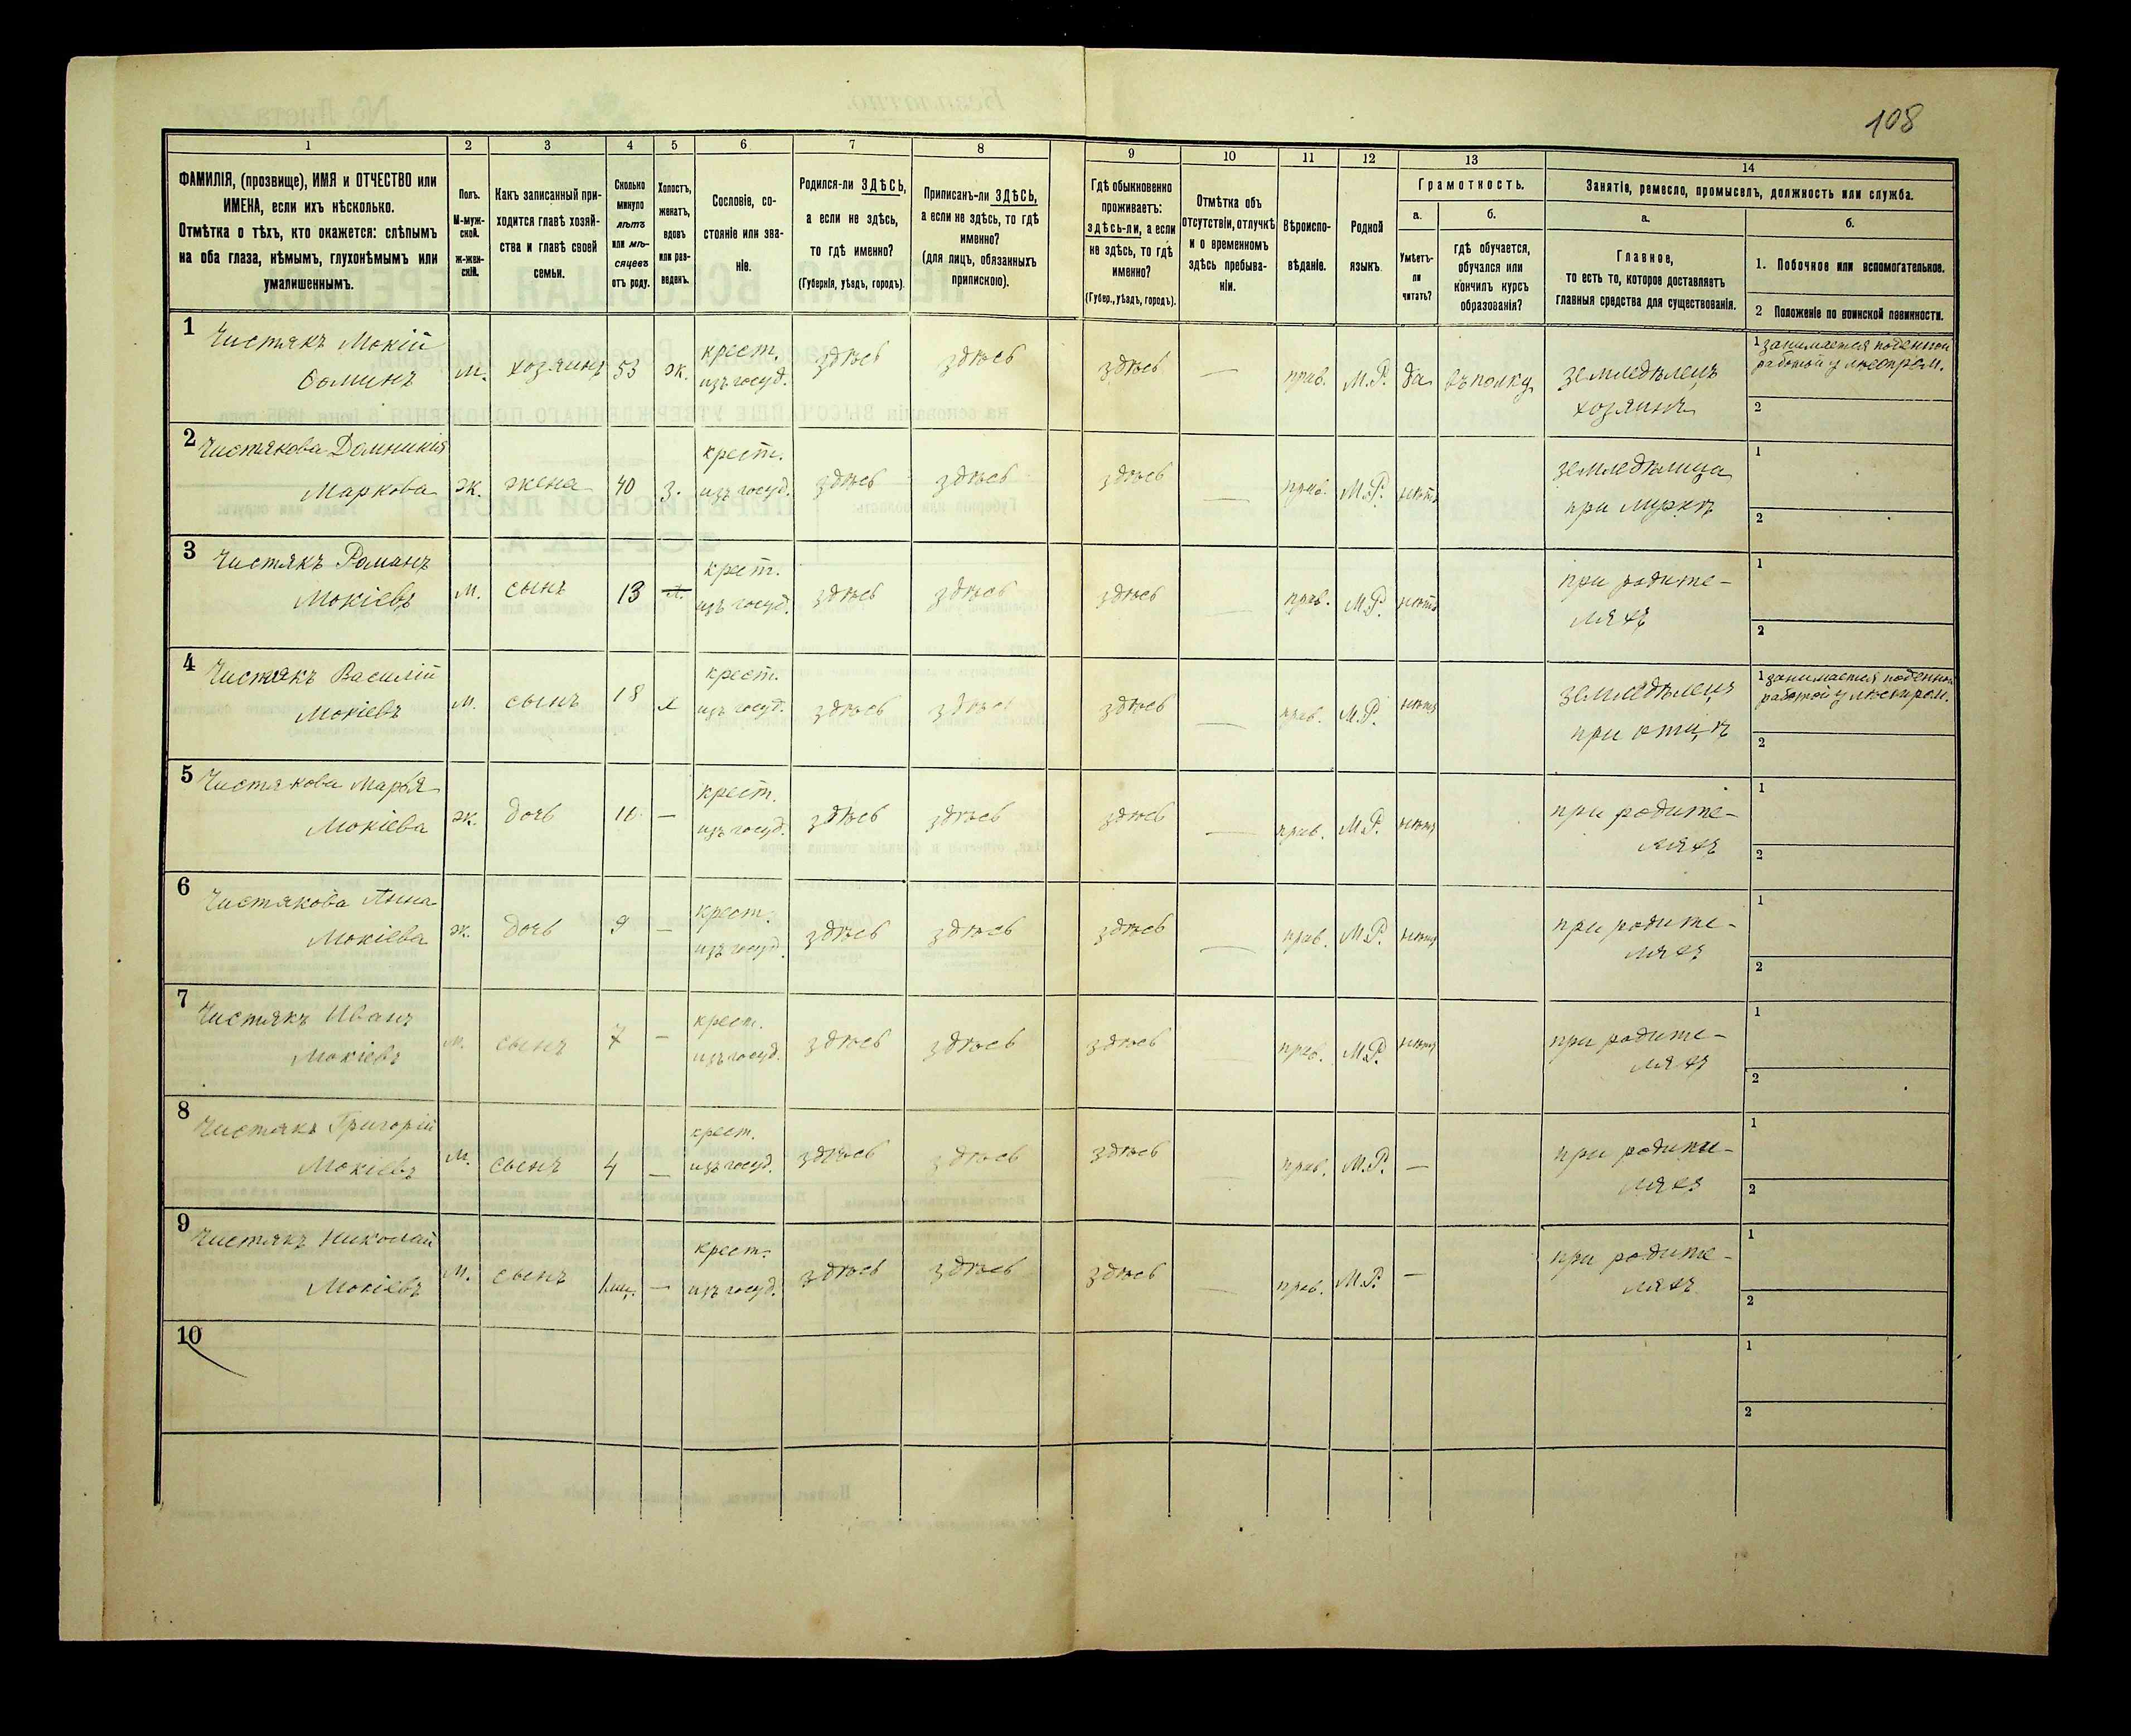 108
1 2 3 4 5 6 7 8 9 10 11 12 13 14
ФАМИЛІЯ, (прозвище), ИМЯ и ОТЧЕСТВО или
ИМЕНА, если ихъ нѣсколько.
Отмѣтка о тѣхъ, кто окажется: слѣпымъ
на оба глаза, нѣмымъ, глухонѣмымъ или
умалишеннымъ.
Полъ.
М-муж-
ской.
ж-жен-
скій.
Какъ записанный при-
ходится главѣ хозяй-
ства и главѣ своей
семьи.
Сколько
минуло
лѣтъ
или мѣ-
сяцевъ
отъ роду.
Холостъ,
женатъ,
вдовъ
или раз-
веденъ.
Сословіе, со-
стояніе или зва-
ніе.
Родился-ли ЗДѢСЬ,
а если не здѣсь,
то гдѣ именно?
(Губернія, уѣздъ, городъ).
Приписанъ-ли ЗДѢСЬ,
а если не здѣсь, то гдѣ
именно?
(для лицъ, обязанныхъ
припискою).
Гдѣ обыкновенно
проживаетъ:
здѣсь-ли, а если
не здѣсь, то гдѣ
именно?
(Губер., уѣздъ, городъ).
Отмѣтка объ
отсутствіи, отлучкѣ
и о временномъ
здѣсь пребыва-
ніи.
Вѣроиспо-
вѣданіе.
Родной
языкъ.
Грамотность.
а.
Умѣетъ-
ли
читать?
б.
гдѣ обучается,
обучался или
кончилъ курсъ
образованія?
Занятіе, ремесло, промыселъ, должность или служба.
а.
Главное,
то есть то, которое доставляетъ
главныя средства для существованія.
б.
1. Побочное или вспомогательное.
2 Положеніе по воинской повинности.
1 Чистякъ Мокій
Ѳоминъ
м. хозяинъ 53 ж.
крест.
изъ госуд.
здѣсь здѣсь здѣсь — прав. М.Р. да въ полку
земледѣлецъ
хозяинъ
1 занимается поденной
работой у мѣстн.
2
2 Чистякова Домникія
Маркова
ж. жена 40 з.
крест.
изъ госуд.
здѣсь здѣсь здѣсь — прав. М.Р. нѣтъ
земледѣлица
при мужѣ
1
2
3 Чистякъ Романъ
Мокіевъ
м. сынъ 13
крест.
изъ госуд.
здѣсь здѣсь здѣсь — прав. М.Р. нѣтъ
при родите-
ляхъ
1
2
4 Чистякъ Василій
Мокіевъ
м. сынъ 18 х
крест.
изъ госуд.
здѣсь здѣсь здѣсь — прав. М.Р. нѣтъ
земледѣлецъ
при отцѣ
1 занимается поденной
работой у
2
5 Чистякова Марья
Мокіева
ж. дочь 10 —
крест.
изъ госуд.
здѣсь здѣсь здѣсь — прав. М.Р. нѣтъ
при родите-
ляхъ
1
2
6 Чистякова Анна
Мокіева
ж. дочь 9 —
крест.
изъ госуд.
здѣсь здѣсь здѣсь — прав. М.Р. нѣтъ
при родите-
ляхъ
1
2
7 Чистякъ Иванъ
Мокіевъ
м. сынъ 7 —
крест.
изъ госуд.
здѣсь здѣсь здѣсь — прав. М.Р. нѣтъ
при родите-
ляхъ
1
2
8 Чистякъ Григорій
Мокіевъ
м. сынъ 4 —
крест.
изъ госуд.
здѣсь здѣсь здѣсь прав. М.Р. —
при родите-
ляхъ
1
2
9 Чистякъ Николай
Мокіевъ
м. сынъ 1 мц. —
крест.
изъ госуд.
здѣсь здѣсь здѣсь — прав. М.Р. —
при родите-
ляхъ
1
2
10
1
2